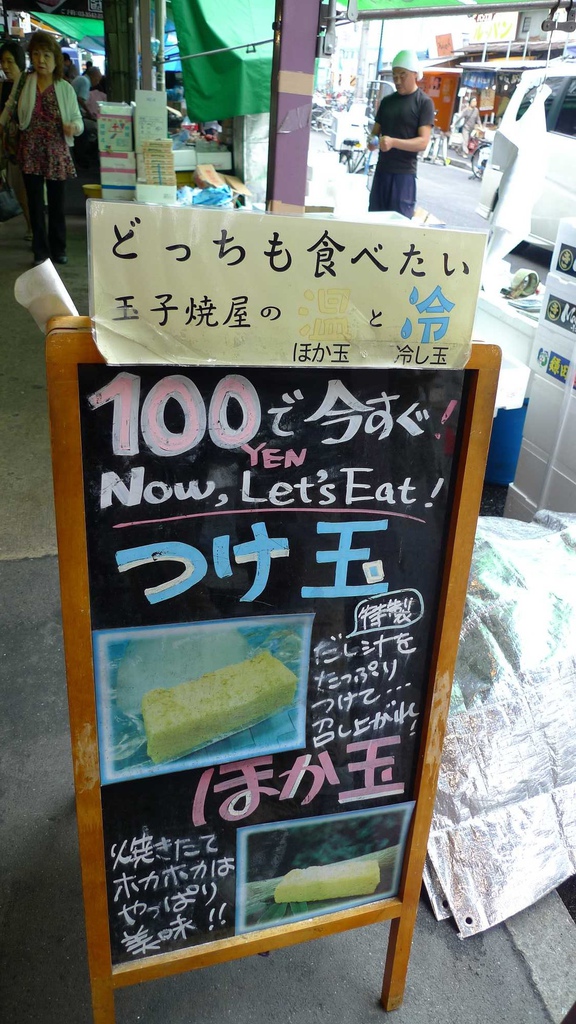 どっちも食べたい
玉子焼屋の温と冷
ほか玉 冷し玉
100で今すぐ!
YEN
Now, Let's Eat!
つけ玉
特製
だし汁を
たっぷり
つけて…
召し上がれ!
ほか玉
焼きたて
ホカホカは
やっぱり
美味!!